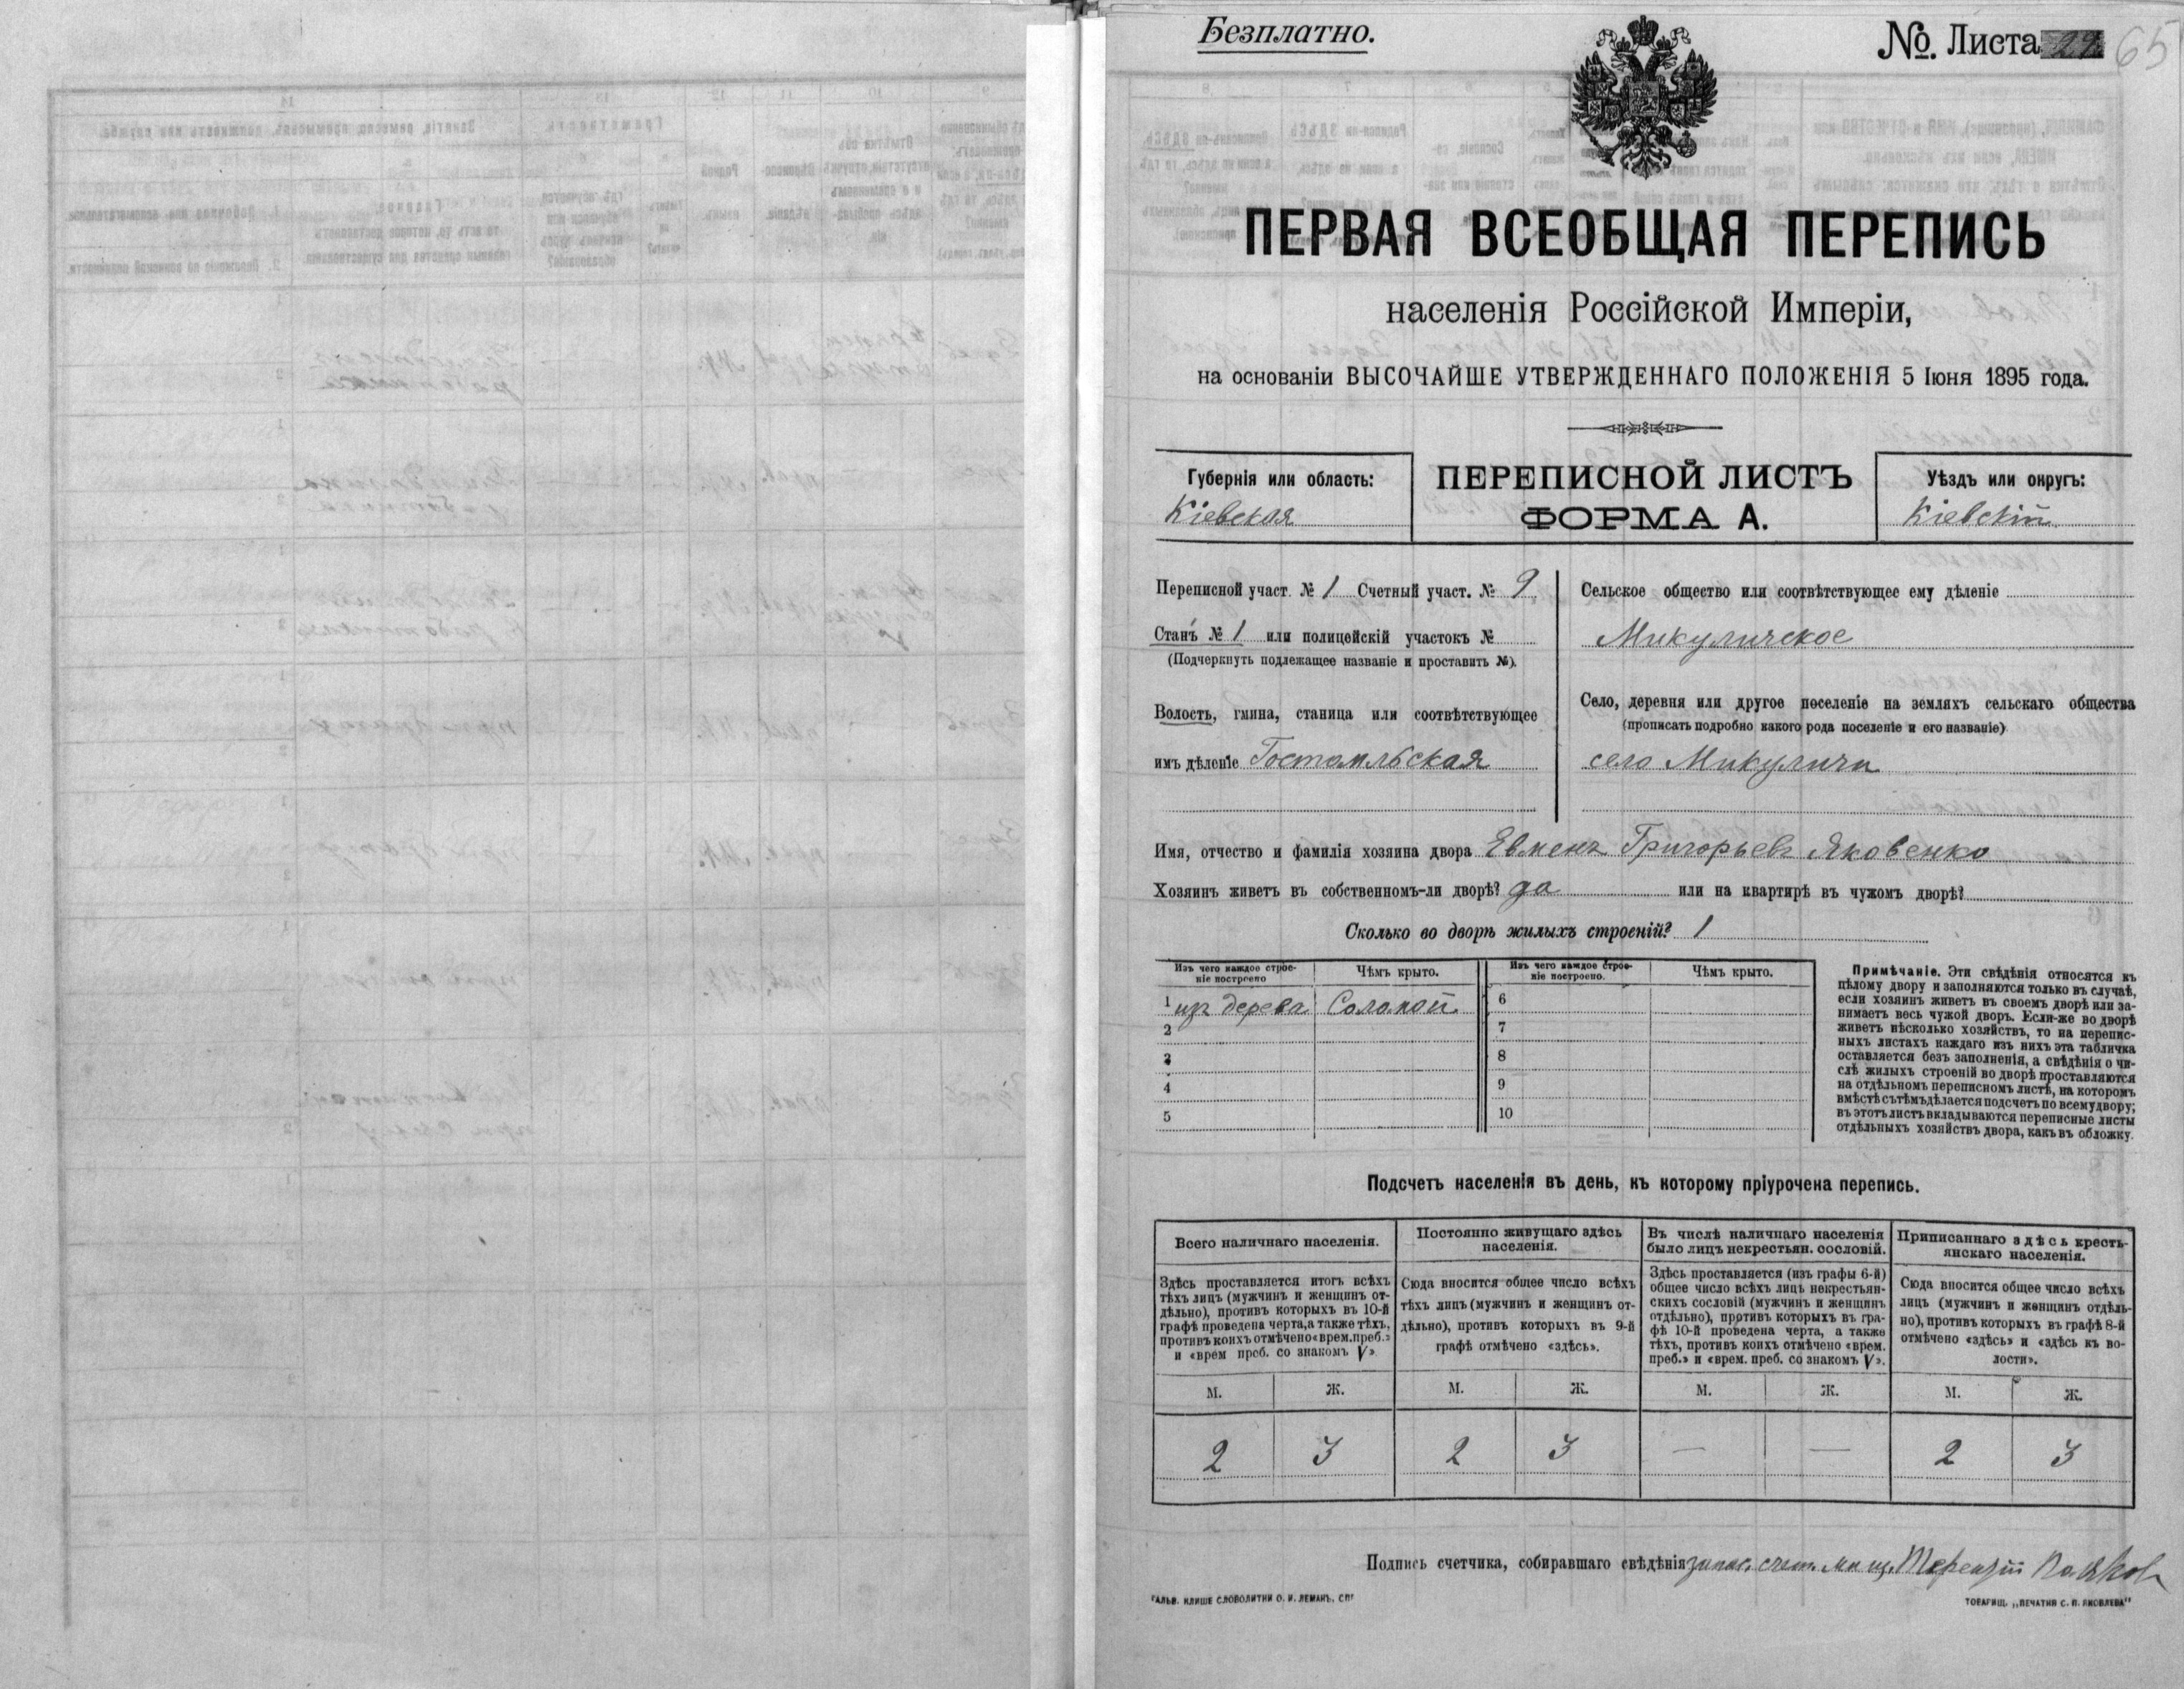 Безплатно.
№. Листа 29 65
ПЕРВАЯ ВСЕОБЩАЯ ПЕРЕПИСЬ
населенія Россійской Имперіи,
на основаніи ВЫСОЧАЙШЕ УТВЕРЖДЕННАГО ПОЛОЖЕНІЯ 5 Іюня 1895 года.
Губернія или область:
Кіевская
ПЕРЕПИСНОЙ ЛИСТЪ
ФОРМА А.
Уѣздъ или округъ:
Кіевскій
Переписной участ. № 1 Счетный участ. № 9
Станъ № 1 или полицейскій участокъ №
(Подчеркнуть подлежащее названіе и проставить №).
Волость, гмина, станица или соотвѣтствующее
имъ дѣленіе Гостомльская
Сельское общество или соотвѣтствующее ему дѣленіе
Микуличское
Село, деревня или другое поселеніе на земляхъ сельскаго общества
(прописать подробно какого рода поселеніе и его названіе)
село Микуличи
Имя, отчество и фамилія хозяина двора Евменъ Григорьевъ Яковенко
Хозяинъ живетъ въ собственномъ-ли дворѣ? да или на квартирѣ въ чужомъ дворѣ?
Сколько во дворѣ жилыхъ строеній? 1
Изъ чего каждое строе-
ніе построено
Чѣмъ крыто.
Изъ чего каждое строе-
ніе построено.
Чѣмъ крыто.
1 изъ дерева Соломой 6
2 7
3 8
4 9
5 10
Примѣчаніе. Эти свѣдѣнія относятся къ
цѣлому двору и заполняются только въ случаѣ,
если хозяинъ живетъ въ своемъ дворѣ или за-
нимаетъ весь чужой дворъ. Если-же во дворѣ
живетъ нѣсколько хозяйствъ, то на перепис-
ныхъ листахъ каждаго изъ нихъ эта табличка
оставляется безъ заполненія, а свѣдѣнія о чи-
слѣ жилыхъ строеній во дворѣ проставляются
на отдѣльномъ переписномъ листѣ, на которомъ
вмѣстѣ съ тѣмъ дѣлается подсчетъ по всему двору;
въ этотъ листъ вкладываются переписные листы
отдѣльныхъ хозяйствъ двора, какъ въ обложку.
Подсчетъ населенія въ день, къ которому пріурочена перепись.
Всего наличнаго населенія.
Постоянно живущаго здѣсь
населенія.
Въ числѣ наличнаго населенія
было лицъ некрестьян. сословій.
Приписаннаго здѣсь кресть-
янскаго населенія.
Здѣсь проставляется итогъ всѣхъ
тѣхъ лицъ (мужчинъ и женщинъ от-
дѣльно), противъ которыхъ въ 10-й
графѣ проведена черта, а также тѣхъ,
противъ коихъ отмѣчено «врем. преб.»
и «врем преб. со знакомъ V»
Сюда вносится общее число всѣхъ
тѣхъ лицъ (мужчинъ и женщинъ от-
дѣльно), противъ которыхъ въ 9-й
графѣ отмѣчено «здѣсь».
Здѣсь проставляется (изъ графы 6-й)
общее число всѣхъ лицъ некрестьян-
скихъ сословій (мужчинъ и женщинъ
отдѣльно), противъ которыхъ въ гра-
фѣ 10-й проведена черта, а также
тѣхъ, противъ коихъ отмѣчено «врем.
преб.» и «врем. преб. со знакомъ V».
Сюда вносится общее число всѣхъ
лицъ (мужчинъ и женщинъ отдѣль-
но), противъ которыхъ въ графѣ 8-й
отмѣчено «здѣсь» и «здѣсь къ во-
лости».
М. Ж. М. Ж. М. Ж. М. Ж.
2 3 2 3 — — 2 3
Подпись счетчика, собиравшаго свѣдѣнія запас. счет. мѣщ. Терентій
ГАЛЬВ. КЛИШЕ СЛОВОЛИТНИ О. И. ЛЕМАНЪ, СПГ
ТОВАРИЩ. „ПЕЧАТНЯ С. П. ЯКОВЛЕВА"